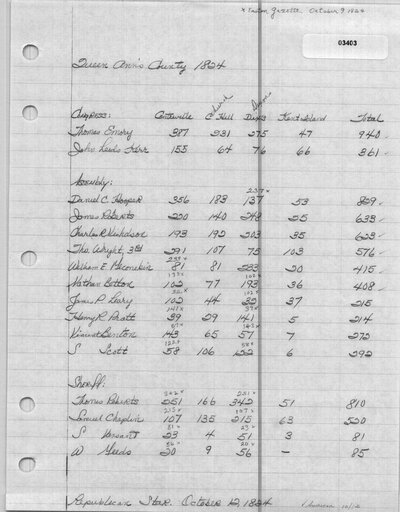 x Easton Gazette October 9 1824
03403
Queen Ann's County 1824
Congress: Centreville C Hill Dixon's Kent Island Total
Thomas Emory 387 231 275 47 940
John Leeds Kerr 155 64 76 66 361
Assembly:
237x
Daniel C. Hopper 356 183 137 53 829
James Roberts 220 140 248 25 633
Charles R. Nicholson 193 192 203 35 623
Tho. Wright, 3rd 291 107 75 103 576
William E. 81 81 233 20 415
Nathan Betton 102 77 193 36 408
James P. 102 44 32 37 215
Henry R. Pratt 39 29 141 5 214
Vincent Benton 143 65 57 7 272
S Scott 58 106 122 6 292
Sheriff:
242x 251x
Thomas Roberts 251 166 342 51 810
215x 107x
Samuel Chaplin 107 135 215 63 520
51x 23x
S 23 4 51 3 81
56x 20x
W 20 9 56 – 85
Republican Star October 12, 1824